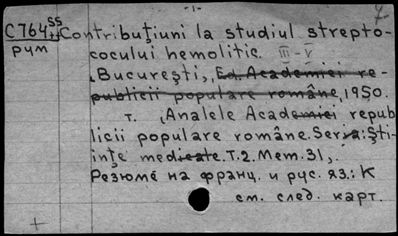 -1-
C764 SS Contribuţiuni la studiul strepto-
рум cocului hemolitic. III-V
Bucureşti, Ed. Academiei re-
publicii populare române, 1950.
т. (Analele Academiei repub
licii populare române. Seria: Şti-
inţe medicale. T.2. Mem. 31).
Резюме на франц. и рус. яз.: К
см. след. карт.
+